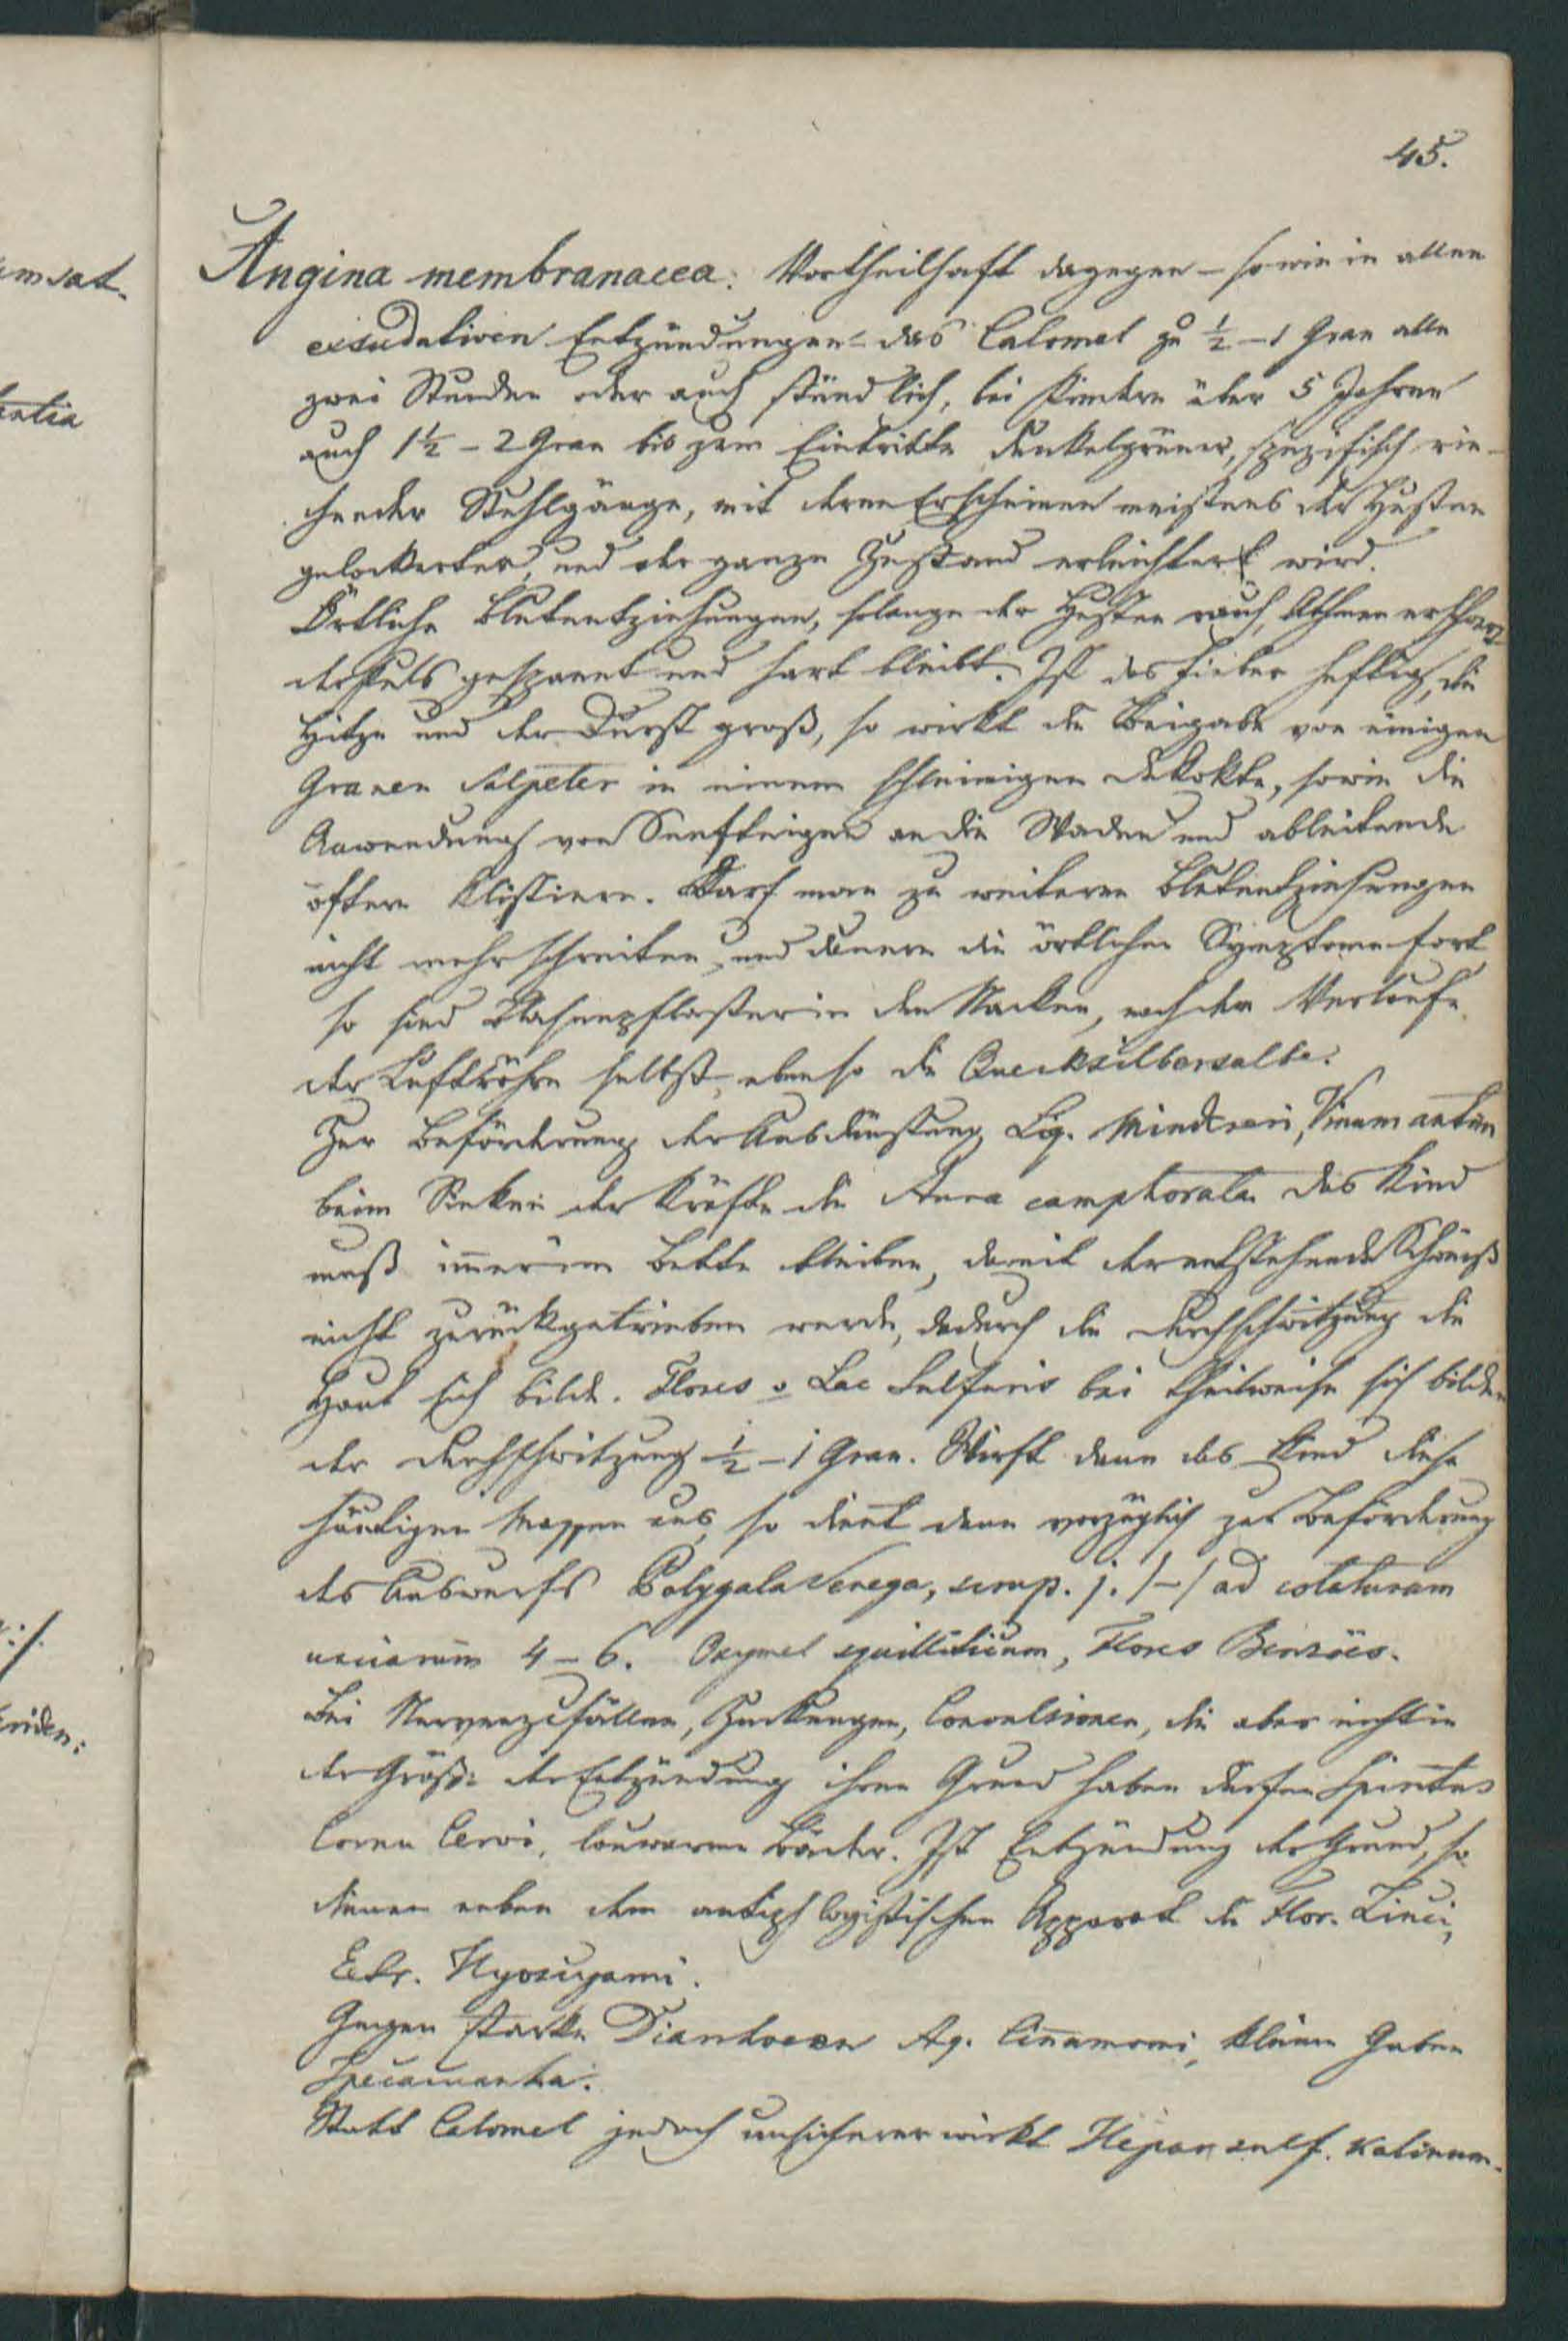 45.
Angina membranacea: Vortheilhaft dagegen – sowie in allen
exsudativen Entzündungen – das Calomel zu ½ – 1 Gran alle
zwei Stunden oder auch stündlich, bei Kindern über 5 Jahren
auch 1½ – 2 Gran bis zum Eintritte dunkelgrüner, spezifisch rie-
chender Stuhlgänge, mit deren Erscheinen meistens der Husten
gelockerter, und der ganze Zustand erleichtert wird.
Örtliche Blutentziehungen, solange der Husten rauh, Athmen erschwert
der Puls gespannt und hart bleibt. Ist das Fieber heftig, die
Hitze und der Durst groß, so wirkt die Beigabe von einigen
Granen Salpeter in einem schleimigen Dekokte, sowie die
Anwendung von Senfteigen an die Waden und ableitende
öftere Klistiere. Darf man zu weiteren Blutentziehungen
nicht mehr schreiten, und dauern die örtlichen Symptome fort
so sind Blasenpflaster in den Nacken, nach dem Verlaufe
der Luftröhre selbst, ebenso die Quecksilbersalbe.
Zur Beförderung der Ausdünstung Liq. Mindereri, Vinum antim
beim Sinken der Kräfte die camphorata das Kind
muß immer im Bette bleiben, damit der entstehende Schweiß
nicht zurückgetrieben werde, dadurch die Durchschwitzung die
Haut sich bilde. Flores v Lac Sulfuris bei theilweise sich bilden
der Durchschwitzung ½ – 1 Gran. Wirft dann das Kind diese
häutigen Massen aus, so dient dann vorzüglich zur Beförderung
des Auswurfs Polygala Senega, j. /–/ ad colaturam
unciarum 4 – 6. Oxymel squilliticum, Flores Benzöes.
Bei Nervenzufällen, Zuckungen, Convulsionen, die aber nicht in
der Größe der Entzündung ihren Grund haben dürfen Spiritus
Cornu Cervi, lauwarme Bäder. Ist Entzündung der Grund, so
dienen neben dem antiphlogistischen Apparat die Flor. Zinci,
Extr. Hyoscyami.
Gegen starke Diarrhoeen Aq. Cinnamomi, kleine Gaben
Ipecacuanha.
Statt Calomel jedoch unsicherer wirkt Hepar sulf. Kalinum.